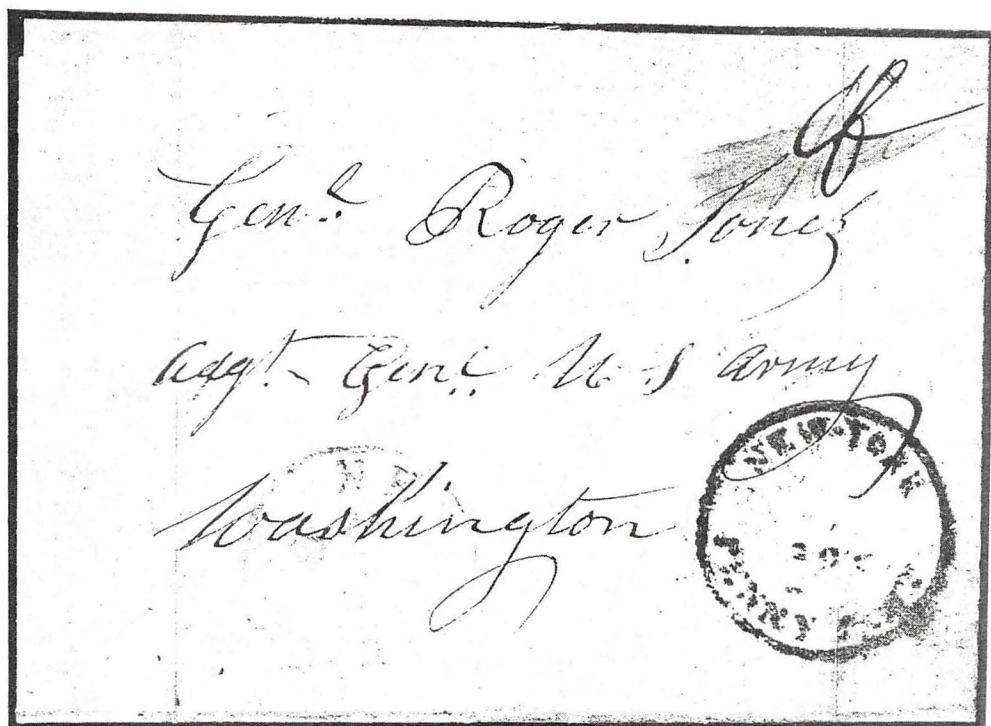 Genl. Roger Jones
Adgt. Genl. U S Army
Washington
NEW-YORK
PENNY POST